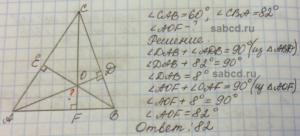 C
∠CAB=60°, ∠CBA=82°
∠AOF-?
sabcd.ru
Решение
∠DAB+∠ADB=90°(из △ABD)
∠DAB+82°=90°
sabcd.ru
∠DAB=8°
∠AOF+∠OAF=90°(из △AOF)
∠AOF+8°=90°
sabcd.ru
∠AOF=82°
Ответ: 82
E
D
O
?
A
F
B